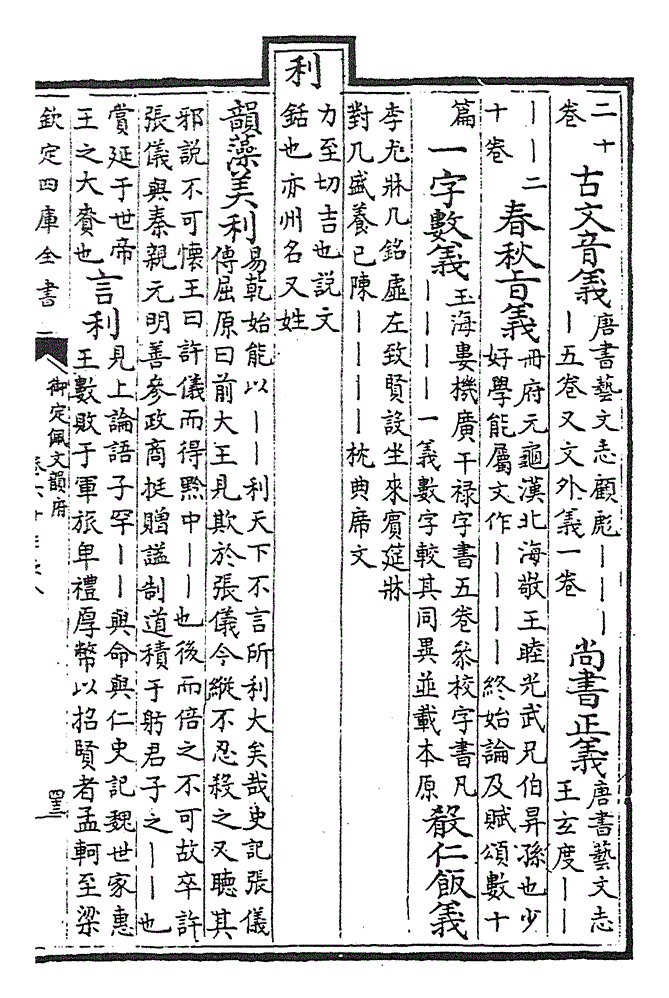 二十
卷
古文音義
唐書藝文志顧彪｜｜｜
｜五卷又文外義一卷
尚書正義
唐書藝文志
王玄度｜｜
｜｜二
十卷
春秋旨義
冊府元龜漢北海敬王睦光武兄伯昇孫也少
好學能屬文作｜｜｜｜終始論及賦頌數十
篇
一字數義
玉海婁機廣干禄字書五卷叅校字書凡
｜｜｜｜一義數字較其同異並載本原
殽仁飯義
李尤牀几銘虛左致賢設坐來賓筵牀
對几盛養已陳｜｜｜｜枕典席文
利
力至切吉也説文
銛也亦州名又姓
韻藻美利
易乾始能以｜｜利天下不言所利大矣哉史記張儀
傳屈原曰前大王見欺於張儀今縱不忍殺之又聽其
邪說不可懷王曰許儀而得黔中｜｜也後而倍之不可故卒許
張儀與秦親元明善參政商挺贈謚制道積于躬君子之｜｜也
賞延于世帝
王之大賚也
言利
見上論語子罕｜｜與命與仁史記魏世家惠
王數敗于軍旅卑禮厚幣以招賢者孟軻至梁
欽定四庫全書
御定佩文韻府